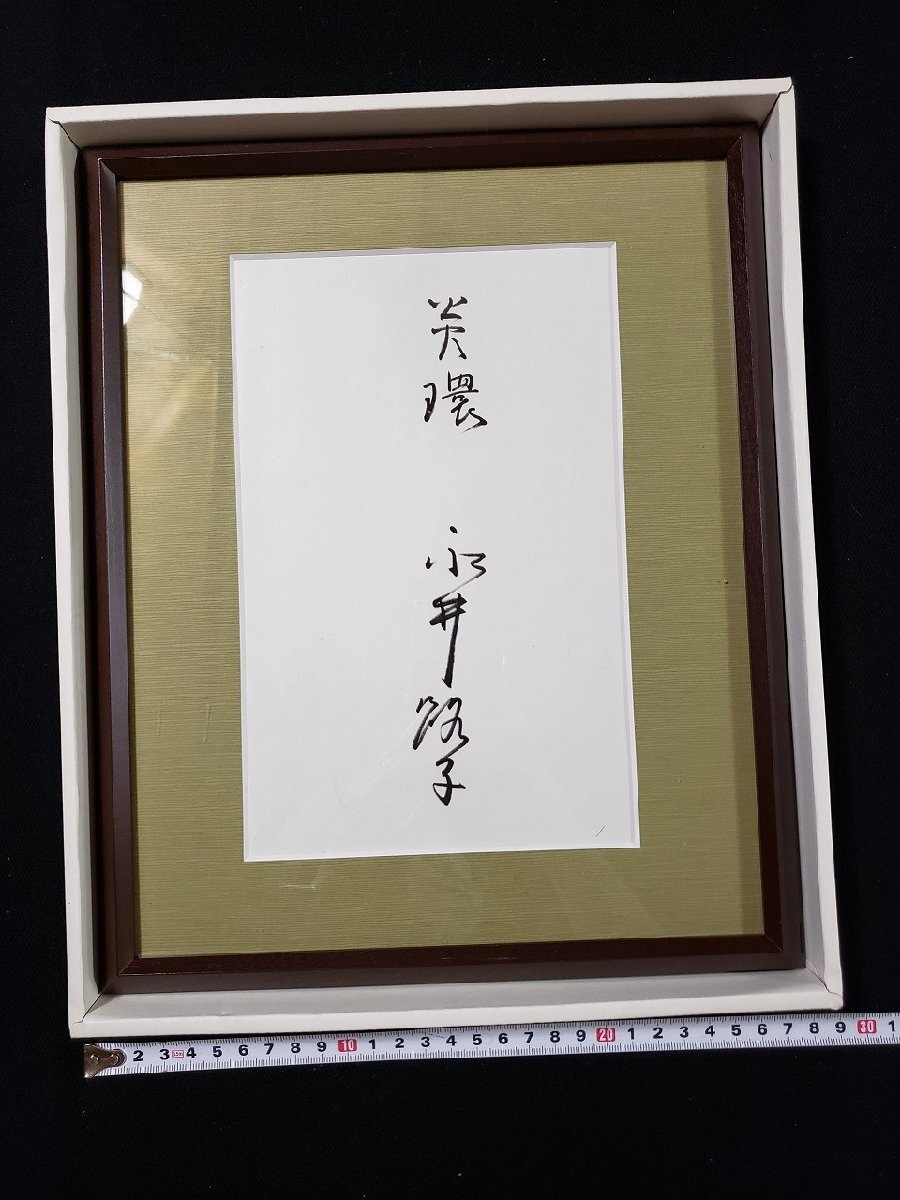 炎環 永井路子
2 3 1.5m 4 5 6 7 8 9 10 1 2 3 4 5 6 7 8 9 20 1 2 3 4 5 6 7 8 9 30 1